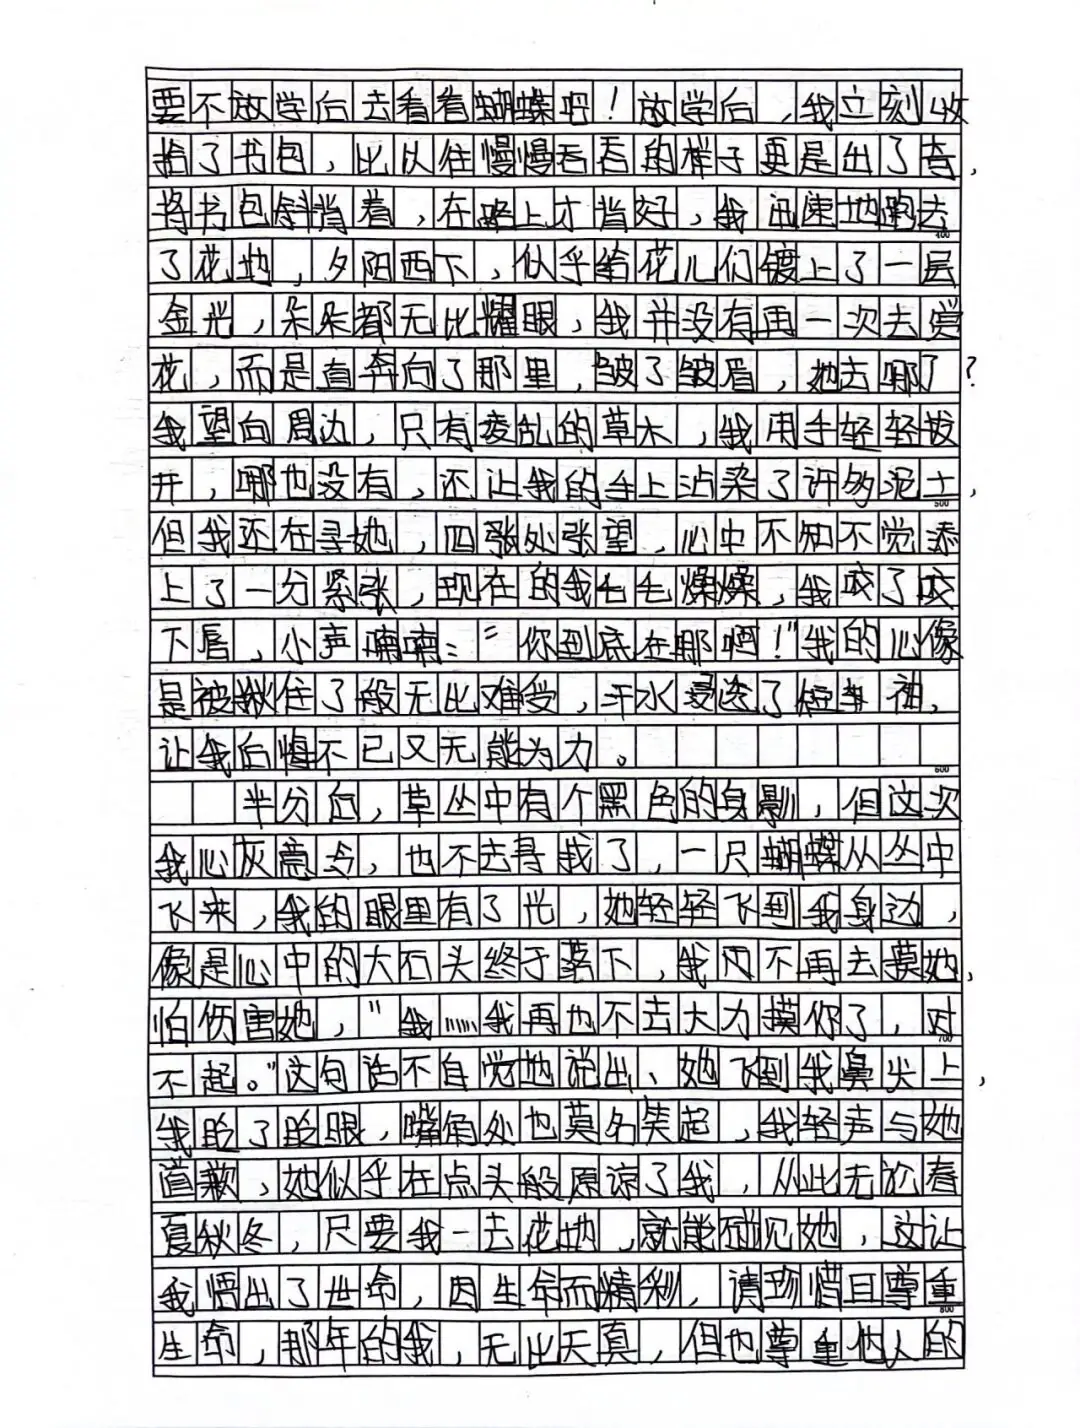 要不放学后去看看蝴蝶吧！放学后，我立刻收
拾了书包，比以往慢慢吞吞的样子更是出了奇，
将书包斜背着，在路上才背好，我迅速地跑去
400
了花地，夕阳西下，似乎给花儿们镀上了一层
金光，朵朵都无比耀眼，我并没有再一次去赏
花，而是直奔向了那里，皱了皱眉，她去哪了？
我望向周边，只有凌乱的草木，我用手轻轻拔
开，哪也没有，还让我的手上沾染了许多泥土，
500
但我还在寻她，四张处张望，心中不知不觉添
上了一分紧张，现在的我毛毛燥燥，我咬了咬
下唇，小声喃喃：“你到底在哪啊！”我的心像
是被揪住了般无比难受，汗水浸透了短袖，
让我后悔不已又无能为力。
600
半分后，草丛中有个黑色的身影，但这次
我心灰意冷，也不去寻找了，一只蝴蝶从丛中
飞来，我的眼里有了光，她轻轻飞到我身边，
像是心中的大石头终于落下，我 不再去摸她，
怕伤害她，“我……我再也不去大力摸你了，对
700
不起。”这句话不自觉地说出、她飞到我鼻尖上，
我眨了眨眼，嘴角处也莫名笑起，我轻声与她
道歉，她似乎在点头般原谅了我，从此无论春
夏秋冬，只要我一去花地，就能碰见她，这让
我悟出了世命，因生命而精彩，请珍惜且尊重
800
生命，那年的我，无比天真，但也尊重他人的